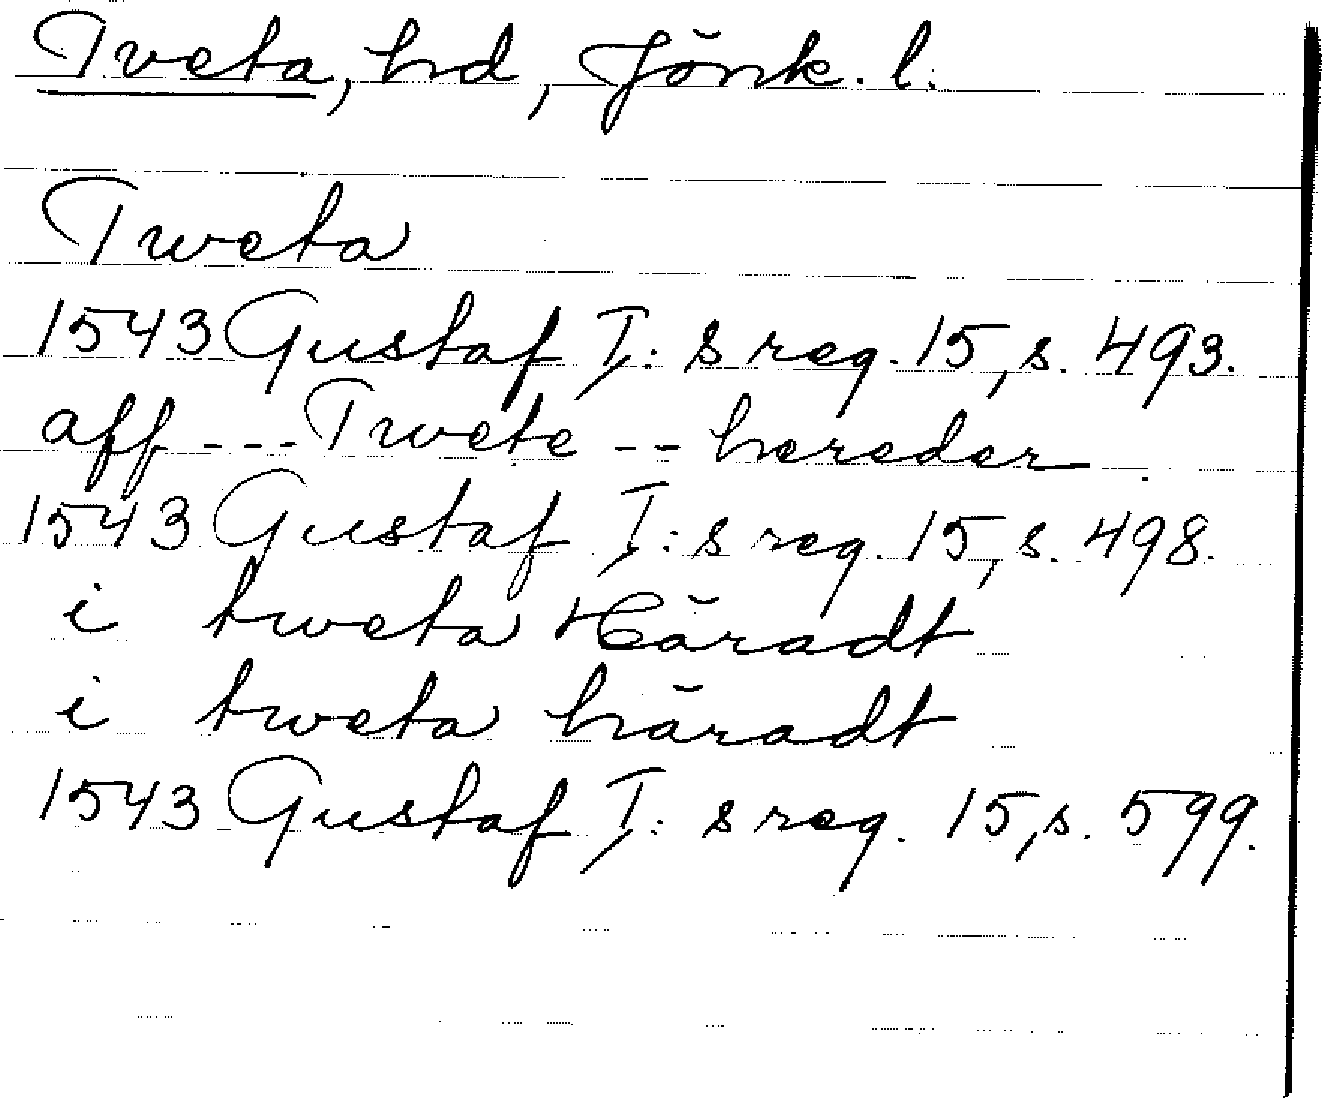 Tveta, hd, Jönk. l.
Tweta
1543 Gustaf I: s reg. 15, s. 493.
aff --- Twete -- hereder
1543 Gustaf I: s reg. 15, s. 498.
i tweta Häradt
i tweta häradt
1543 Gustaf I: s reg. 15, s. 599.